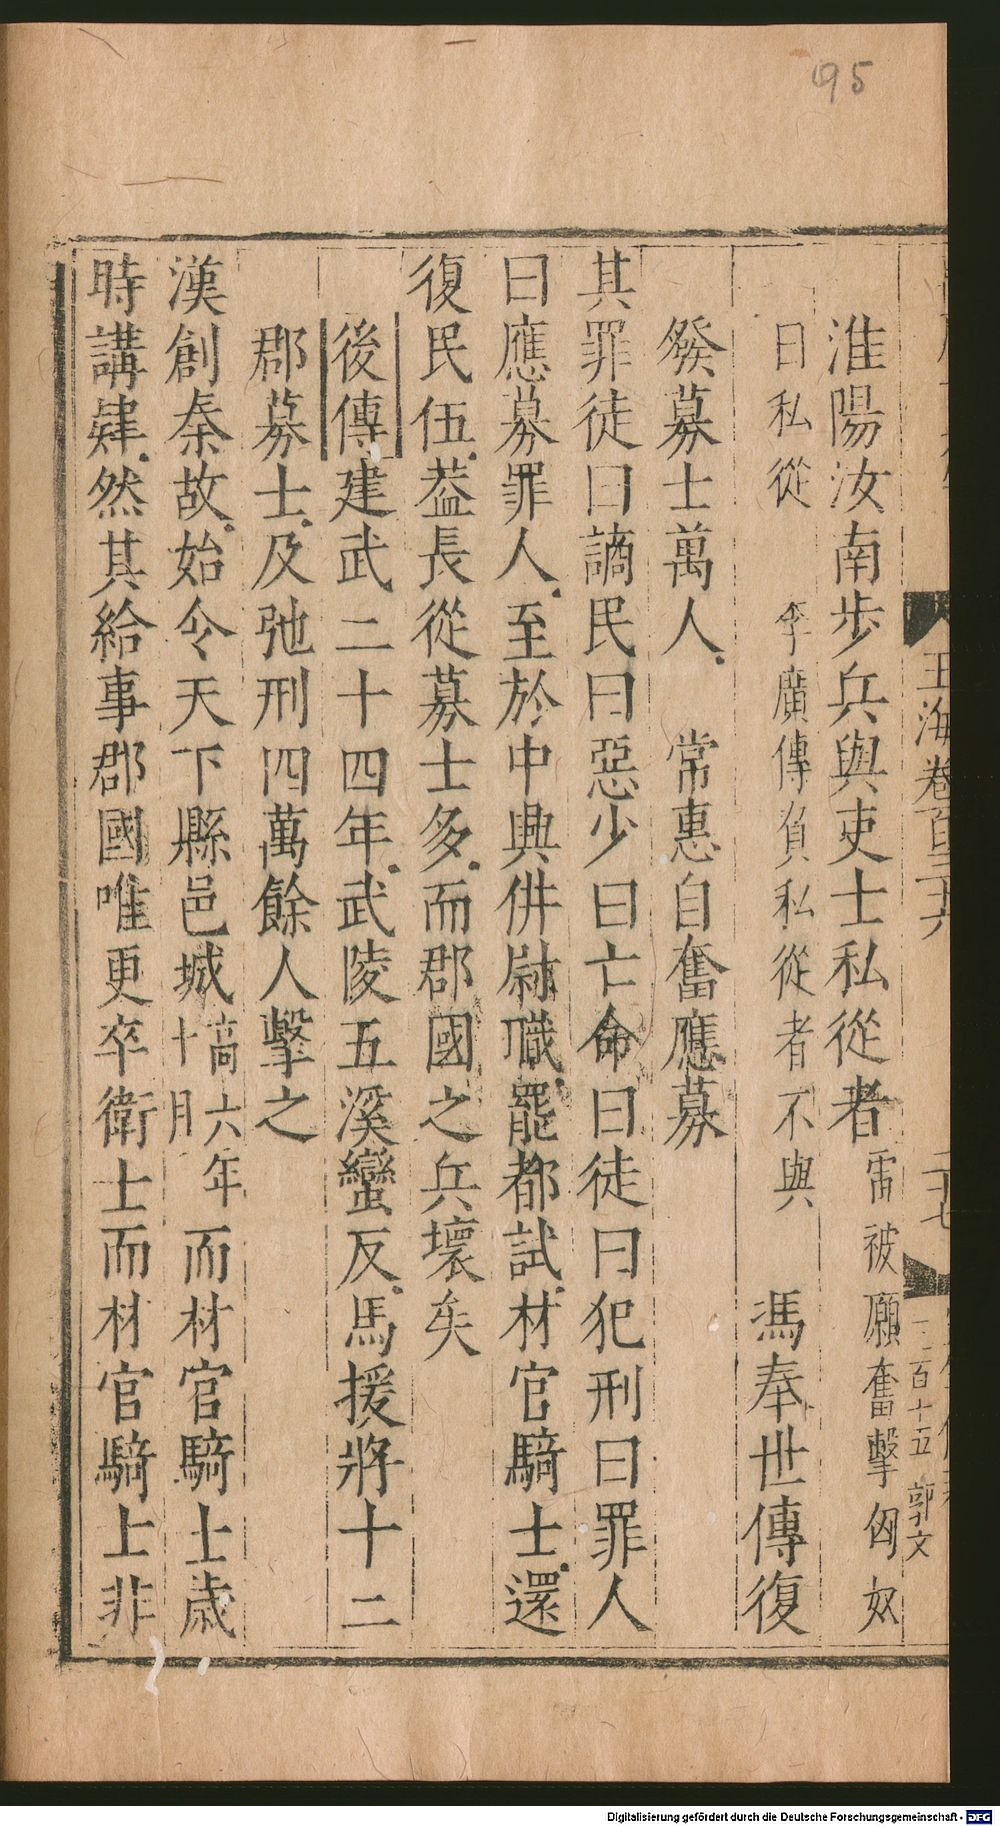 95
玉海卷百三十六
二十七
二百十五 郭文
淮陽汝南步兵與吏士私從者 雷被願奮擊匈奴
曰私從 李廣傳負私從者不與 馮奉世傳復
發募士萬人 常惠自奮應募
其罪徒曰謫民曰惡少曰亡命曰徒曰犯刑曰罪人
曰應募罪人至於中興併尉職罷都試材官騎士還
復民伍葢長從募士多而郡國之兵壞矣
後傳建武二十四年武陵五溪蠻反馬援將十二
郡募士及弛刑四萬餘人擊之
漢創秦故始令天下縣邑城 高六年十月 而材官騎士歲
時講肄然其給事郡國唯更卒衛士而材官騎士非
Digitalisierung gefördert durch die Deutsche Forschungsgemeinschaft - DFG